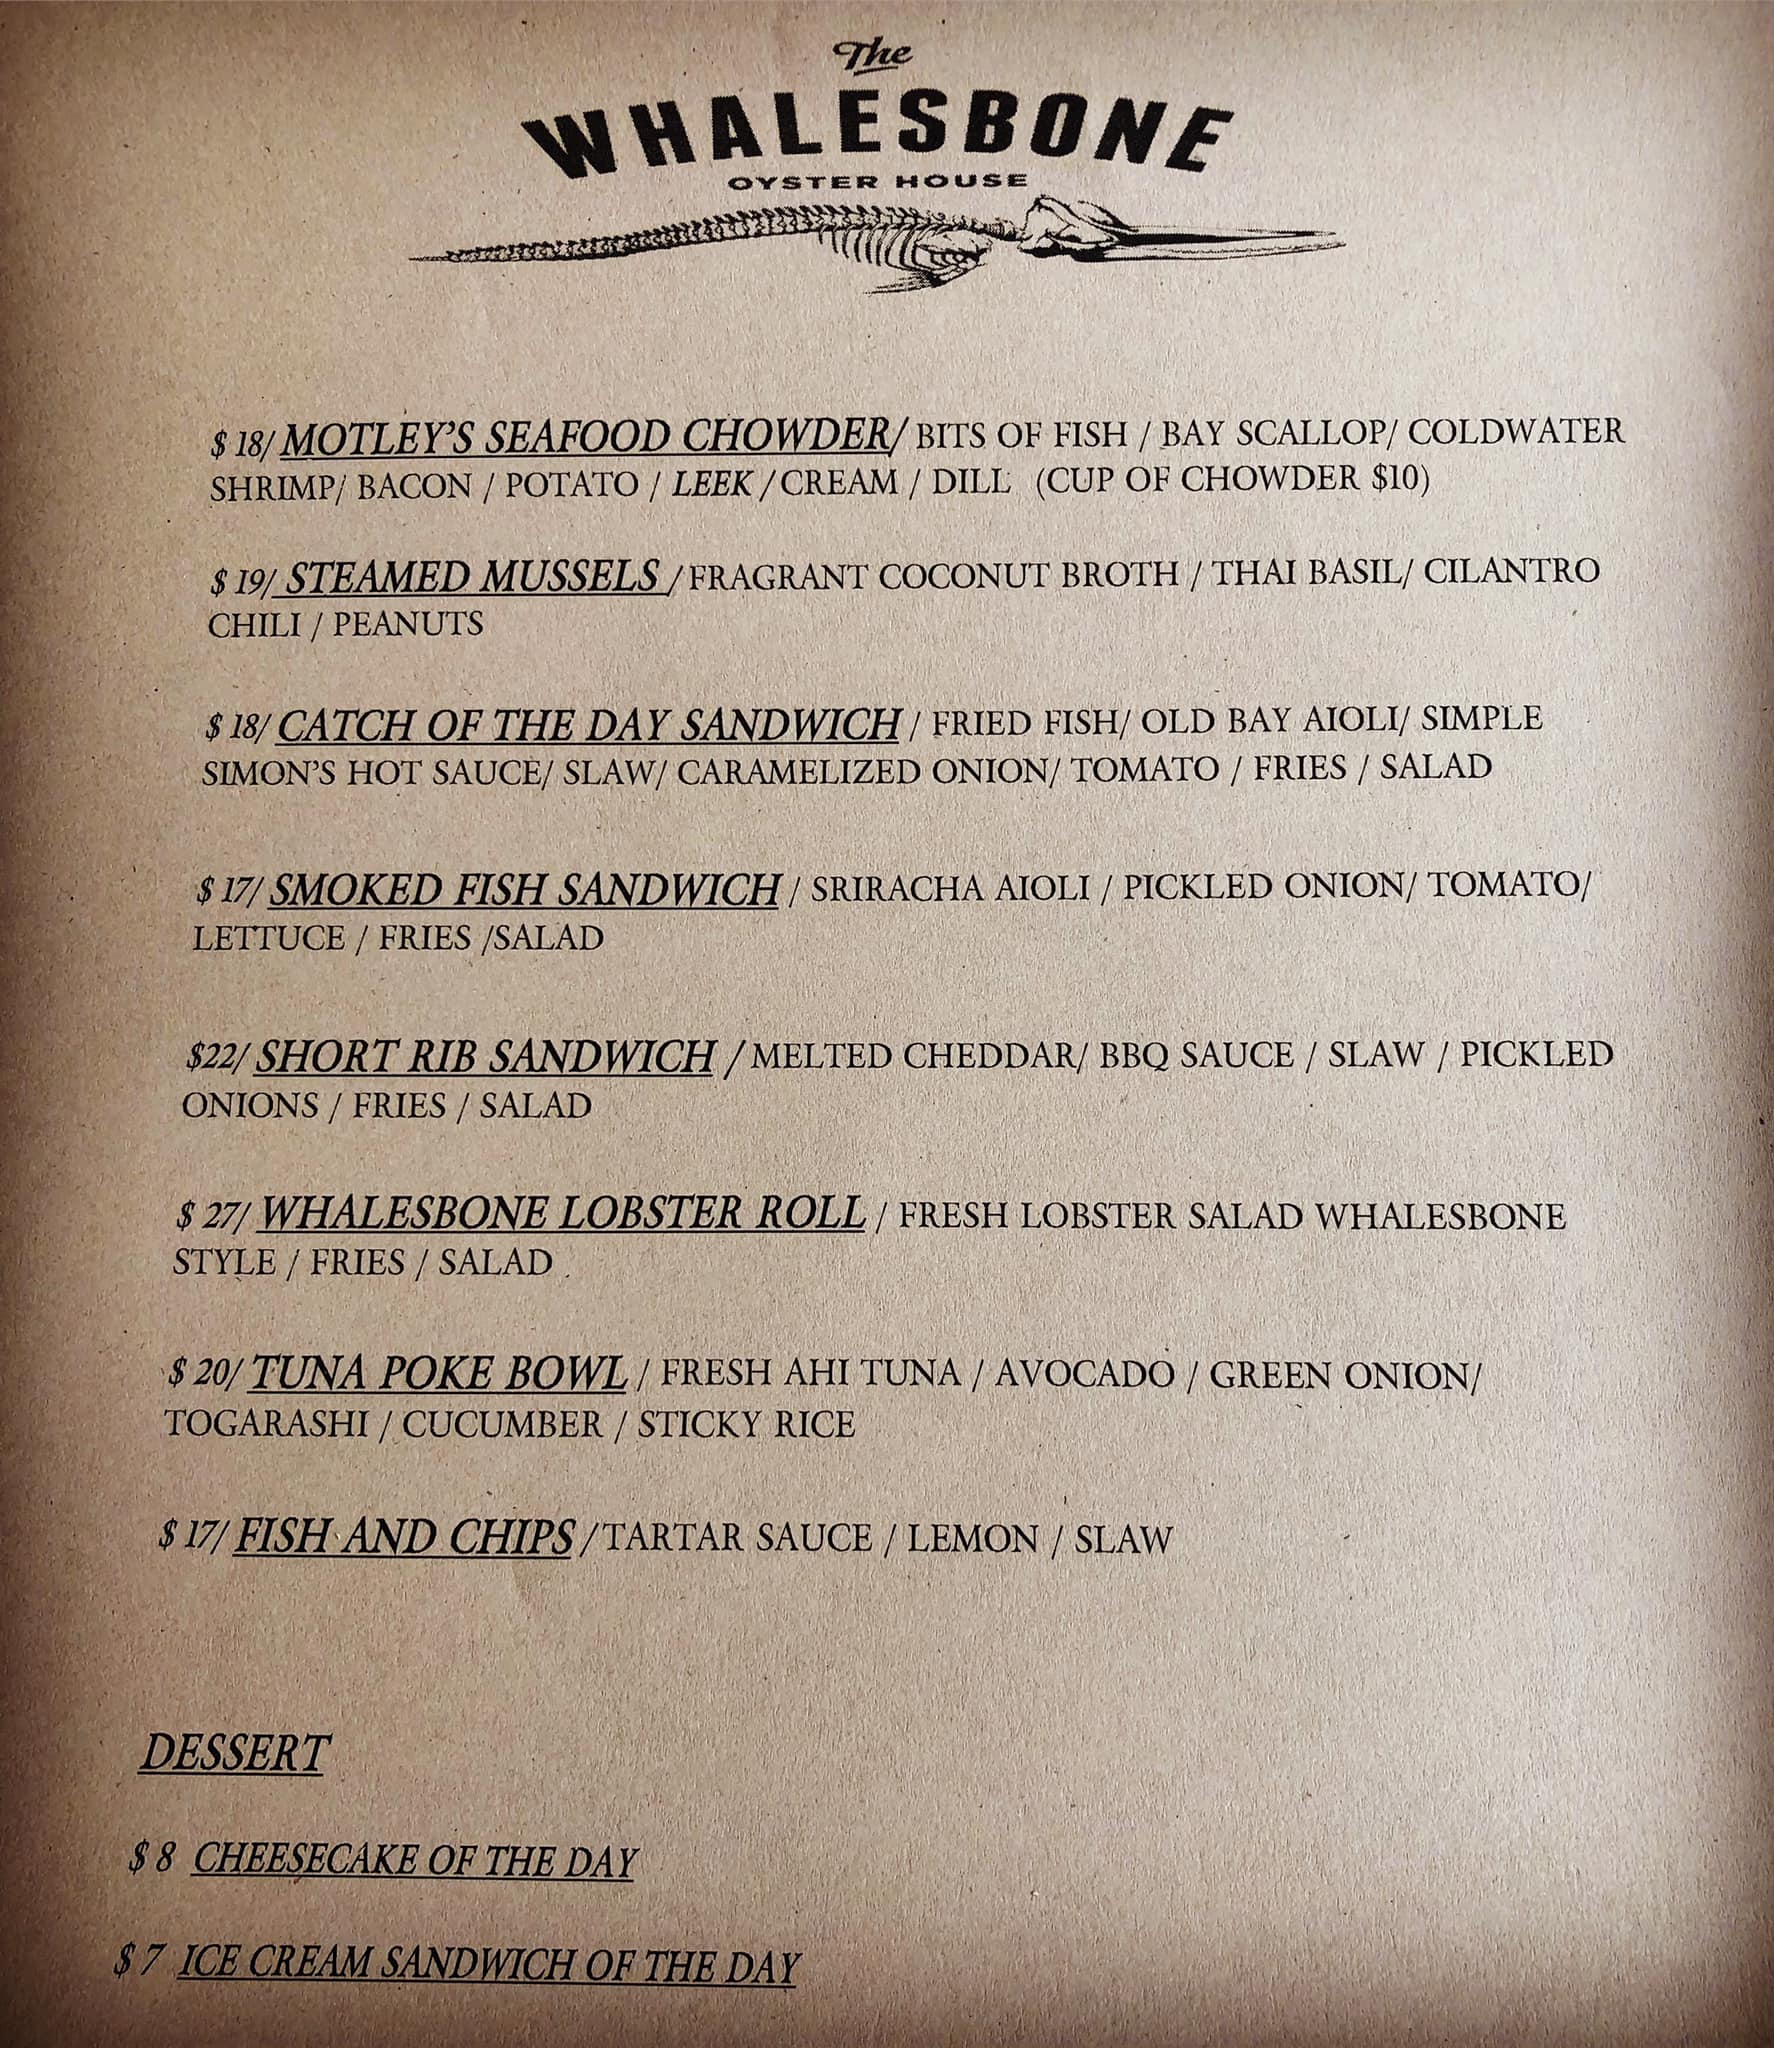 The
WHALESBONE
OYSTER HOUSE
$ 18/ MOTLEY'S SEAFOOD CHOWDER/ BITS OF FISH / BAY SCALLOP/ COLDWATER
SHRIMP/ BACON / POTATO / LEEK / CREAM / DILL (CUP OF CHOWDER $10)
$ 19/ STEAMED MUSSELS / FRAGRANT COCONUT BROTH / THAI BASIL/ CILANTRO
CHILI / PEANUTS
$ 18/ CATCH OF THE DAY SANDWICH / FRIED FISH/ OLD BAY AIOLI/ SIMPLE
SIMON'S HOT SAUCE/ SLAW/ CARAMELIZED ONION/ TOMATO / FRIES / SALAD
$ 17/ SMOKED FISH SANDWICH / SRIRACHA AIOLI / PICKLED ONION/ TOMATO/
LETTUCE / FRIES /SALAD
$22/ SHORT RIB SANDWICH / MELTED CHEDDAR/ BBQ SAUCE / SLAW / PICKLED
ONIONS / FRIES / SALAD
$ 27/ WHALESBONE LOBSTER ROLL / FRESH LOBSTER SALAD WHALESBONE
STYLE / FRIES / SALAD
$ 20/ TUNA POKE BOWL / FRESH AHI TUNA / AVOCADO / GREEN ONION/
TOGARASHI / CUCUMBER / STICKY RICE
$ 17/ FISH AND CHIPS / TARTAR SAUCE / LEMON / SLAW
DESSERT
$ 8 CHEESECAKE OF THE DAY
$ 7 ICE CREAM SANDWICH OF THE DAY